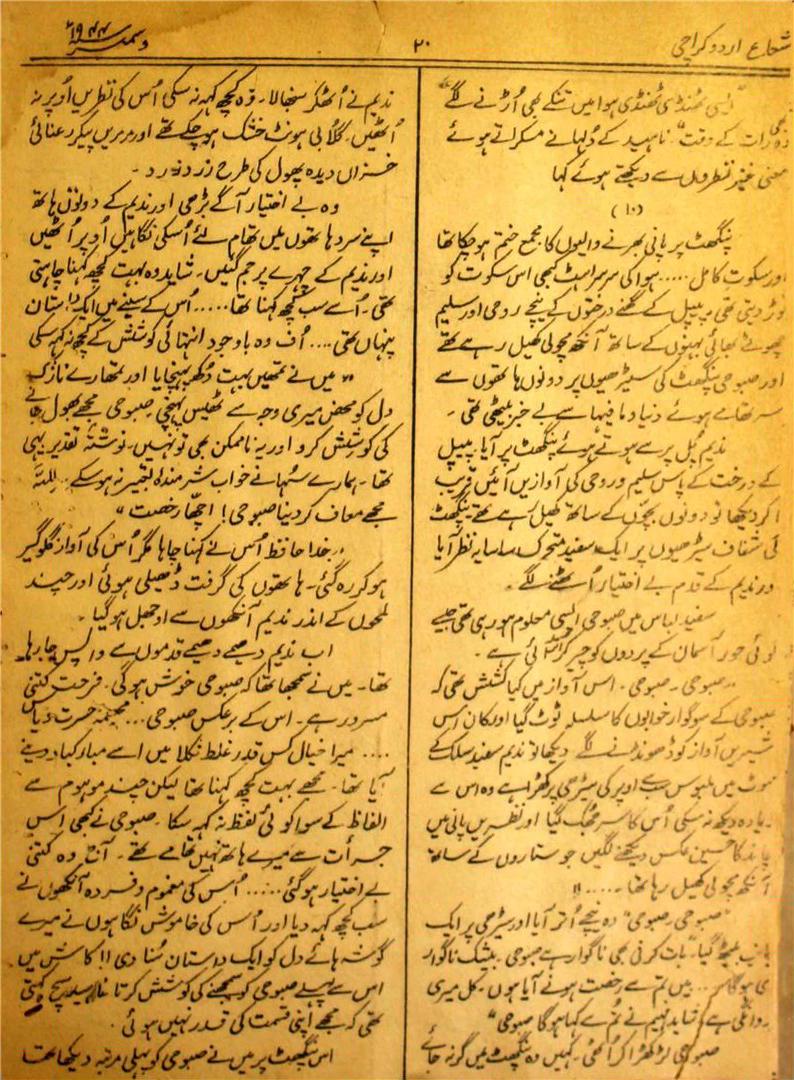 شعاع اردو کراچی
۲۰
دسمبر ۱۹۴۴ء
ٹھنڈی ٹھنڈی ہوا میں تنکے بھی اُڑنے لگے
رات کے وقت" ناہید کے دُلہا نے مسکراتے ہوئے
معنی خیز نظروں سے دیکھتے ہوئے کہا
(۱۰)
پنگھٹ پر پانی بھرنے والیوں کا مجمع ختم ہو چکا تھا
اور سکوت کامل ..... ہوا کی سرسراہٹ کبھی اس سکوت کو
توڑ دیتی تھی پیپل کے گھنے درختوں کے نیچے روحی اور سلیم
چھوٹے بھائی بہنوں کے ساتھ آنکھ مچولی کھیل رہے تھے
اور صبوحی پنگھٹ کی سیڑھیوں پر دونوں ہاتھوں سے
سر تھامے ہوئے دنیا و ما فیہا سے بے خبر بیٹھی تھی ۔
ندیم پُل پر سے ہوتے ہوئے پنگھٹ پر آیا۔ پیپل
کے درخت کے پاس سلیم و روحی کی آوازیں آئیں قریب
آکر دیکھا تو دونوں بچوں کے ساتھ کھیل رہے تھے پنگھٹ
کی شفاف سیڑھیوں پر ایک سفید متحرک سا سایہ نظر آیا
اور ندیم کے قدم بے اختیار اُٹھنے لگے۔
سفید لباس میں صبوحی ایسی معلوم ہو رہی تھی جیسے
کوئی حور آسمان کے پردوں کو چیر کر آئی ہے ۔
"صبوحی ۔ صبوحی ۔ اس آواز میں کیا کشش تھی کہ
صبوحی کے سوگوار خوابوں کا سلسلہ ٹوٹ گیا اور کان اس
شیریں آواز کو ڈھونڈنے لگے دیکھا تو ندیم سفید سلک کے
سوٹ میں ملبوس سب سے اوپر کی سیڑھی پر کھڑا ہے وہ اس سے
زیادہ دیکھ نہ سکی اُس کا سر جھک گیا اور نظریں پانی میں
چاند کا حسین عکس دیکھنے لگیں جو ستاروں کے ساتھ
آنکھ مچولی کھیل رہا تھا ۔.....!!
"صبوحی ۔ صبوحی" وہ نیچے اُتر آیا اور سیڑھی پر ایک
جانب بیٹھ گیا۔ "بات کرنی بھی ناگوار ہے صبوحی ۔ بیشک ناگوار
ہی ہوگا ... میں تم سے رخصت ہونے آیا ہوں ۔ کل میری
روانگی ہے شاید نہیم نے تم سے کہا ہوگا صبوحی"
صبوحی لڑکھڑا کر اُٹھی۔ کہیں وہ پنگھٹ میں گر نہ جائے
ندیم نے اُٹھکر سنبھالا۔ وہ کچھ کہہ نہ سکی اُس کی نظریں اُوپر نہ
اُٹھیں۔ گلابی ہونٹ خشک ہو چکے تھے اور مرمریں پیکر رعنائی
خزاں دیدہ پھول کی طرح زرد زرد ۔
وہ بے اختیار آگے بڑھی اور ندیم کے دونوں ہاتھ
اپنے سرد ہاتھوں میں تھام لئے اُسکی نگاہیں اُوپر اُٹھیں
اور ندیم کے چہرے پر جم گئیں۔ شاید وہ بہت کچھ کہنا چاہتی
تھی۔ اُسے سب کچھ کہنا تھا ..... اُس کے سینے میں ایک داستان
پنہاں تھی .... اُف وہ باوجود انتہائی کوشش کے کچھ نہ کہہ سکی
"میں نے تمھیں بہت دُکھ پہنچایا اور تمھارے نازک
دل کو محض میری وجہ سے ٹھیس پہنچی۔ صبوحی مجھے بھول جانے
کی کوشش کرو اور یہ نا ممکن بھی تو نہیں۔ نوشتۂ تقدیر یہی
تھا۔ ہمارے سُہانے خواب شرمندۂ تعبیر نہ ہو سکے۔ للہ
مجھے معاف کر دینا صبوحی! اچھا رخصت"
"خدا حافظ اُس نے کہنا چاہا مگر اُس کی آواز گلوگیر
ہو کر رہ گئی۔ ہاتھوں کی گرفت ڈھیلی ہوئی اور چند
لمحوں کے اندر ندیم آنکھوں سے اوجھل ہو گیا ۔
اب ندیم دھیمے دھیمے قدموں سے واپس جا رہا
تھا۔ میں نے سمجھا تھا کہ صبوحی خوش ہوگی۔ فرحت کتنی
مسرور ہے۔ اس کے برعکس صبوحی ... مجسمۂ حسرت و یاس
.... میرا خیال کس قدر غلط نکلا میں اسے مبارکباد دینے
آیا تھا۔ مجھے بہت کچھ کہنا تھا لیکن چند موہوم سے
الفاظ کے سوا کوئی لفظ نہ کہہ سکا۔ صبوحی نے کبھی اس
جرأت سے میرے ہاتھ نہیں تھامے تھے۔ آج وہ کتنی
بے اختیار ہو گئی ..... اُس کی مغموم و فسردہ آنکھوں نے
سب کچھ کہہ دیا اور اُس کی خاموش نگاہوں نے میرے
گوشہ ہائے دل کو ایک داستان سُنا دی!! کاش میں
اس سے پہلے صبوحی کو سمجھنے کی کوشش کرتا ناہید سچ کہتی
تھی کہ مجھے اپنی قسمت کی قدر نہیں ہوئی ۔
اس پنگھٹ پر میں نے صبوحی کو پہلی مرتبہ دیکھا تھا